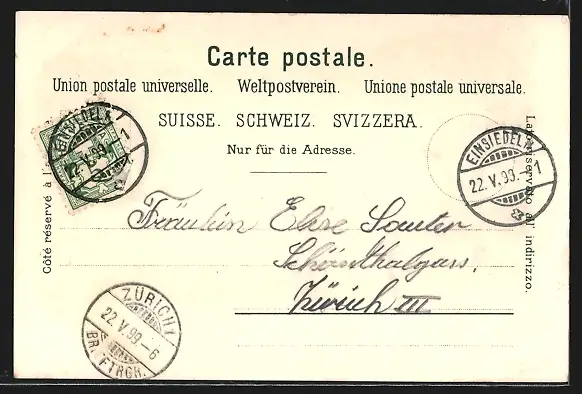 Carte postale.
Union postale universelle. Weltpostverein. Unione postale universale.
SUISSE. SCHWEIZ. SVIZZERA.
Nur für die Adresse.
Côté réservé à l'
Lato riservato all' indirizzo.
EINSIEDELN
22.V.99. 1
EINSIEDELN
22.V.99. 1
Fräulein Elise Sauter
Schönthalgass,
Zürich III
ZÜRICH
22.V.99-6
BR. FTRGR.